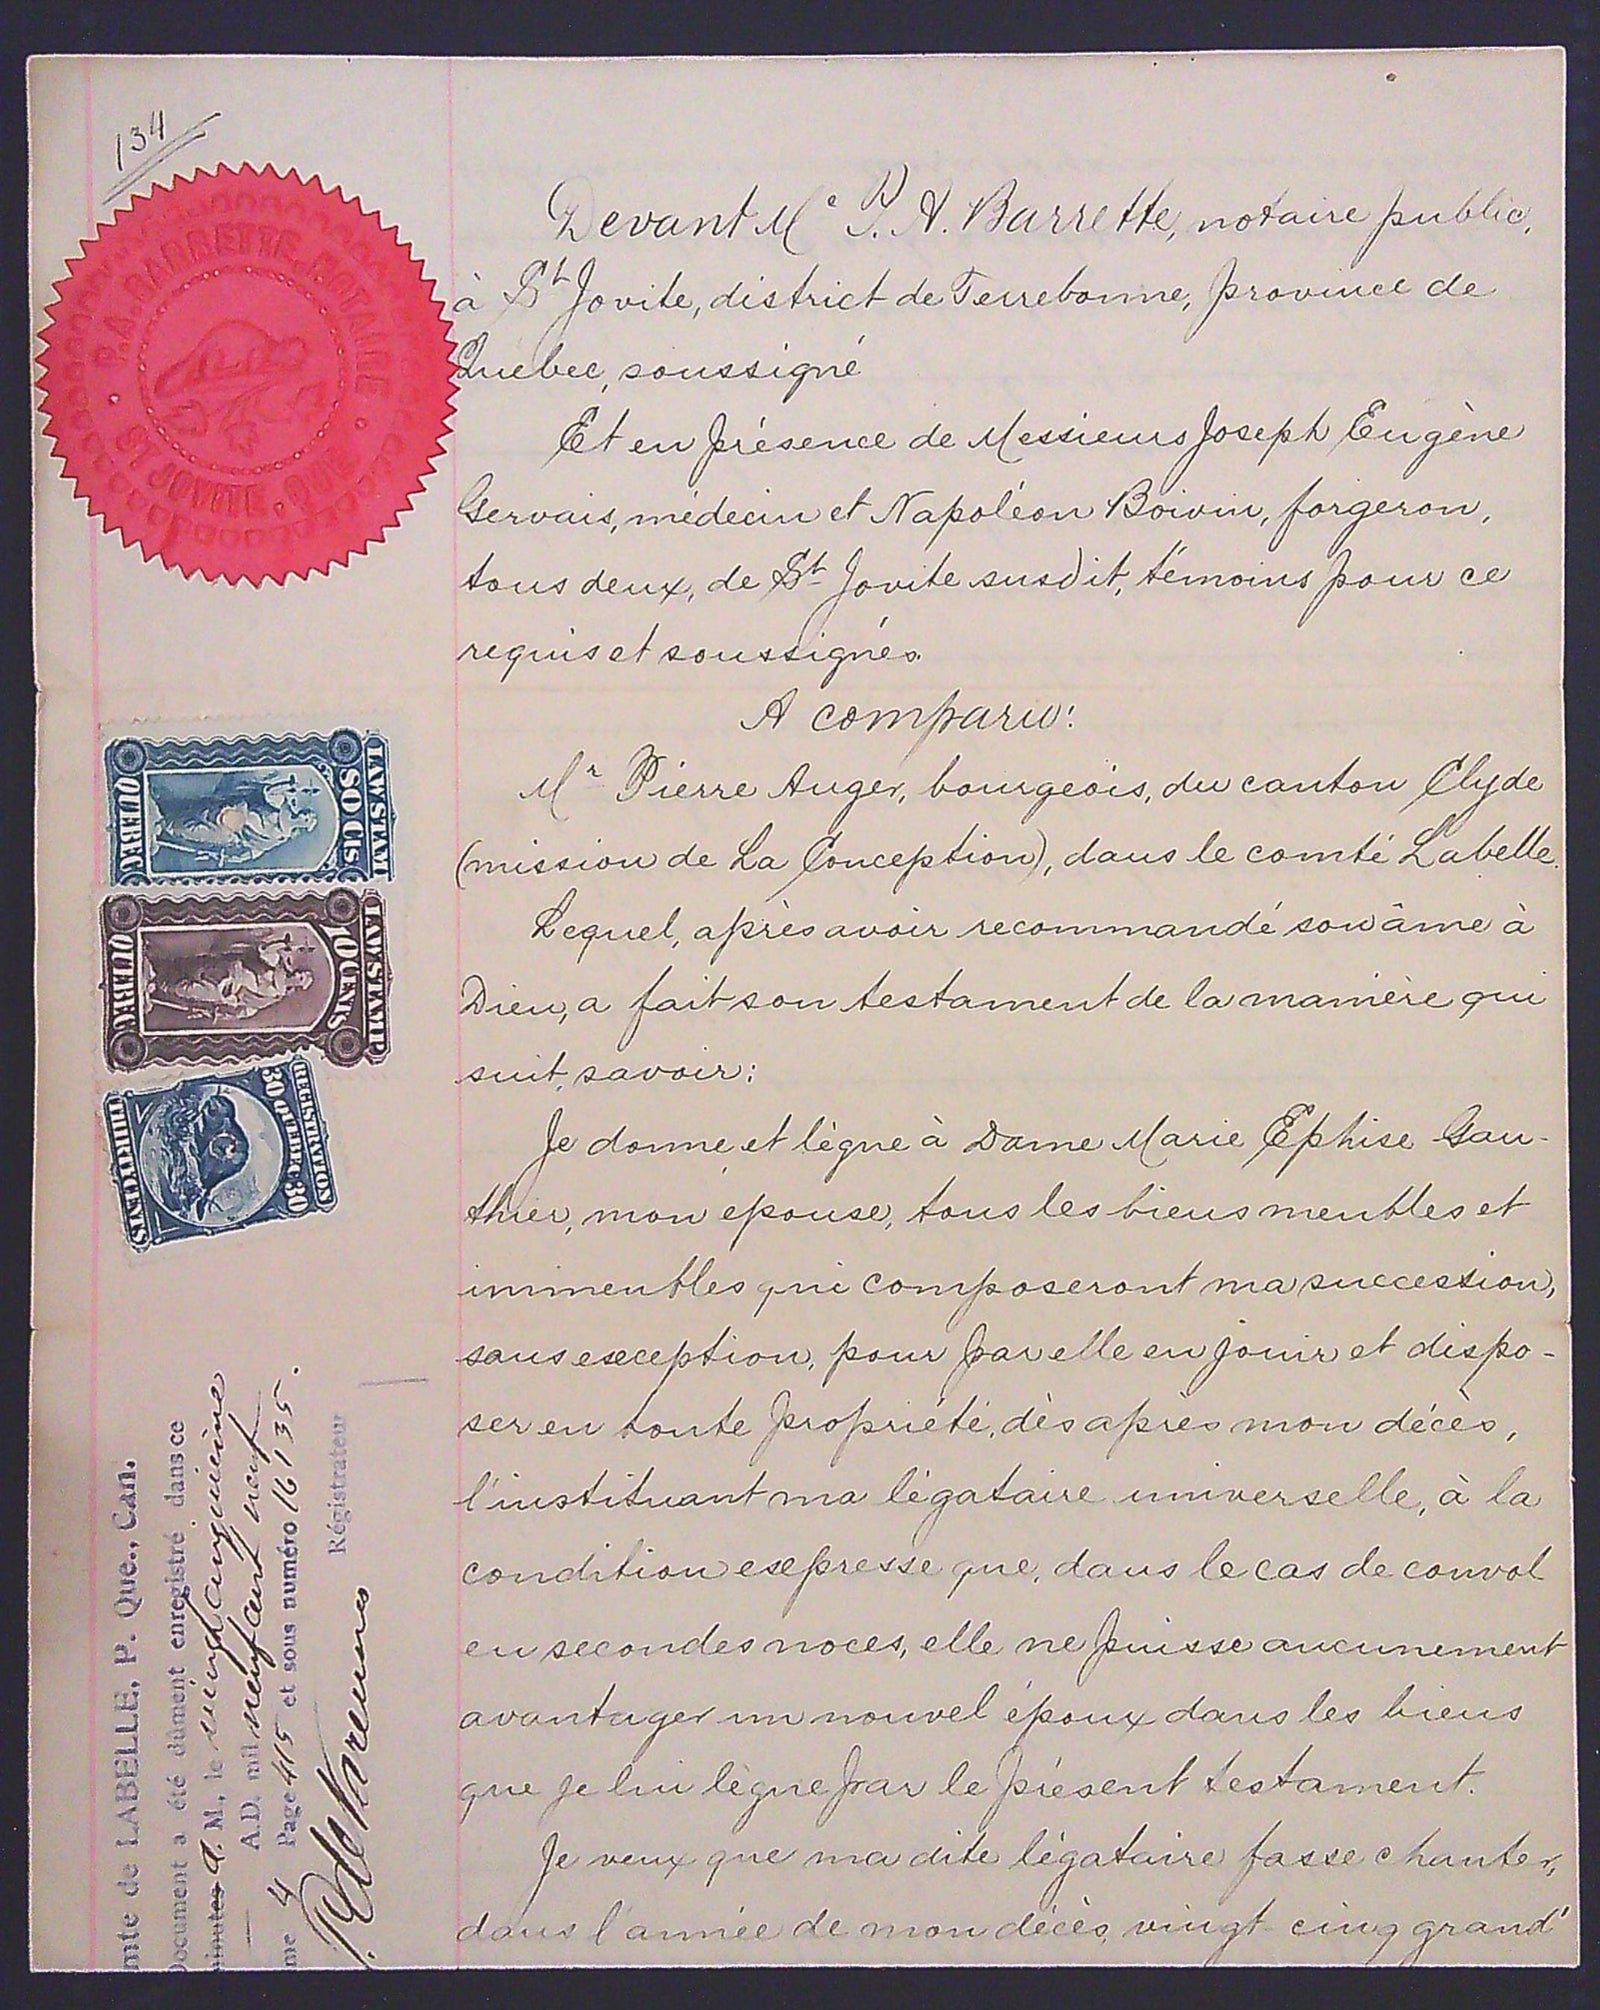 134
P.A. BARRETTE, NOTAIRE
ST JOVITE, QUE.
Devant Me P. A. Barrette, notaire public,
à St Jovite, district de Terrebonne, province de
Québec, soussigné
Et en présence de Messieurs Joseph Eugène
Gervais, médecin et Napoléon Boivin, forgeron,
tous deux, de St Jovite susdit, témoins pour ce
requis et soussignés.
A comparu:
Mr Pierre Auger, bourgeois, du canton Clyde
(mission de La Conception), dans le comté Labelle.
Lequel, après avoir recommandé son âme à
Dieu, a fait son testament de la manière qui
suit, savoir:
Je donne et lègue à Dame Marie Ephise Gau-
thier, mon epouse, tous les biens meubles et
immeubles qui composeront ma succession,
sans exception, pour par elle en jouir et dispo-
ser en toute propriété, dès après mon décès,
l'instituant ma légataire universelle, à la
condition expresse que, dans le cas de convol
en secondes noces, elle ne puisse aucunement
avantager un nouvel époux dans les biens
que je lui lègue par le présent testament.
Je veux que ma dite légataire fasse chanter,
dans l'année de mon décès, vingt-cinq grand'
LAW STAMP
50 CTS
QUEBEC
LAW STAMP
10 CENTS
QUEBEC
REGISTRATION
30 QUEBEC 30
THIRTY CENTS
mte de LABELLE, P. Que., Can.
Document a été dûment enregistré dans ce
minutes A. M., le
A.D. mil neuf cent neuf
me 4 Page 415 et sous numéro 16135.
Régistrateur